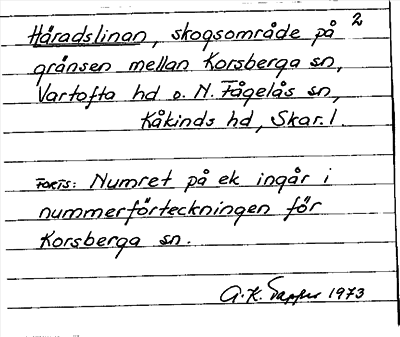 Håradslinan, skogsområde på 2
gränsen mellan Korsberga sn,
Vartofta hd o. N. Fågelås sn,
Kåkinds hd, Skar.l.
FORTS: Numret på ek ingår i
nummerförteckningen för
Korsberga sn.
A.K. 1973